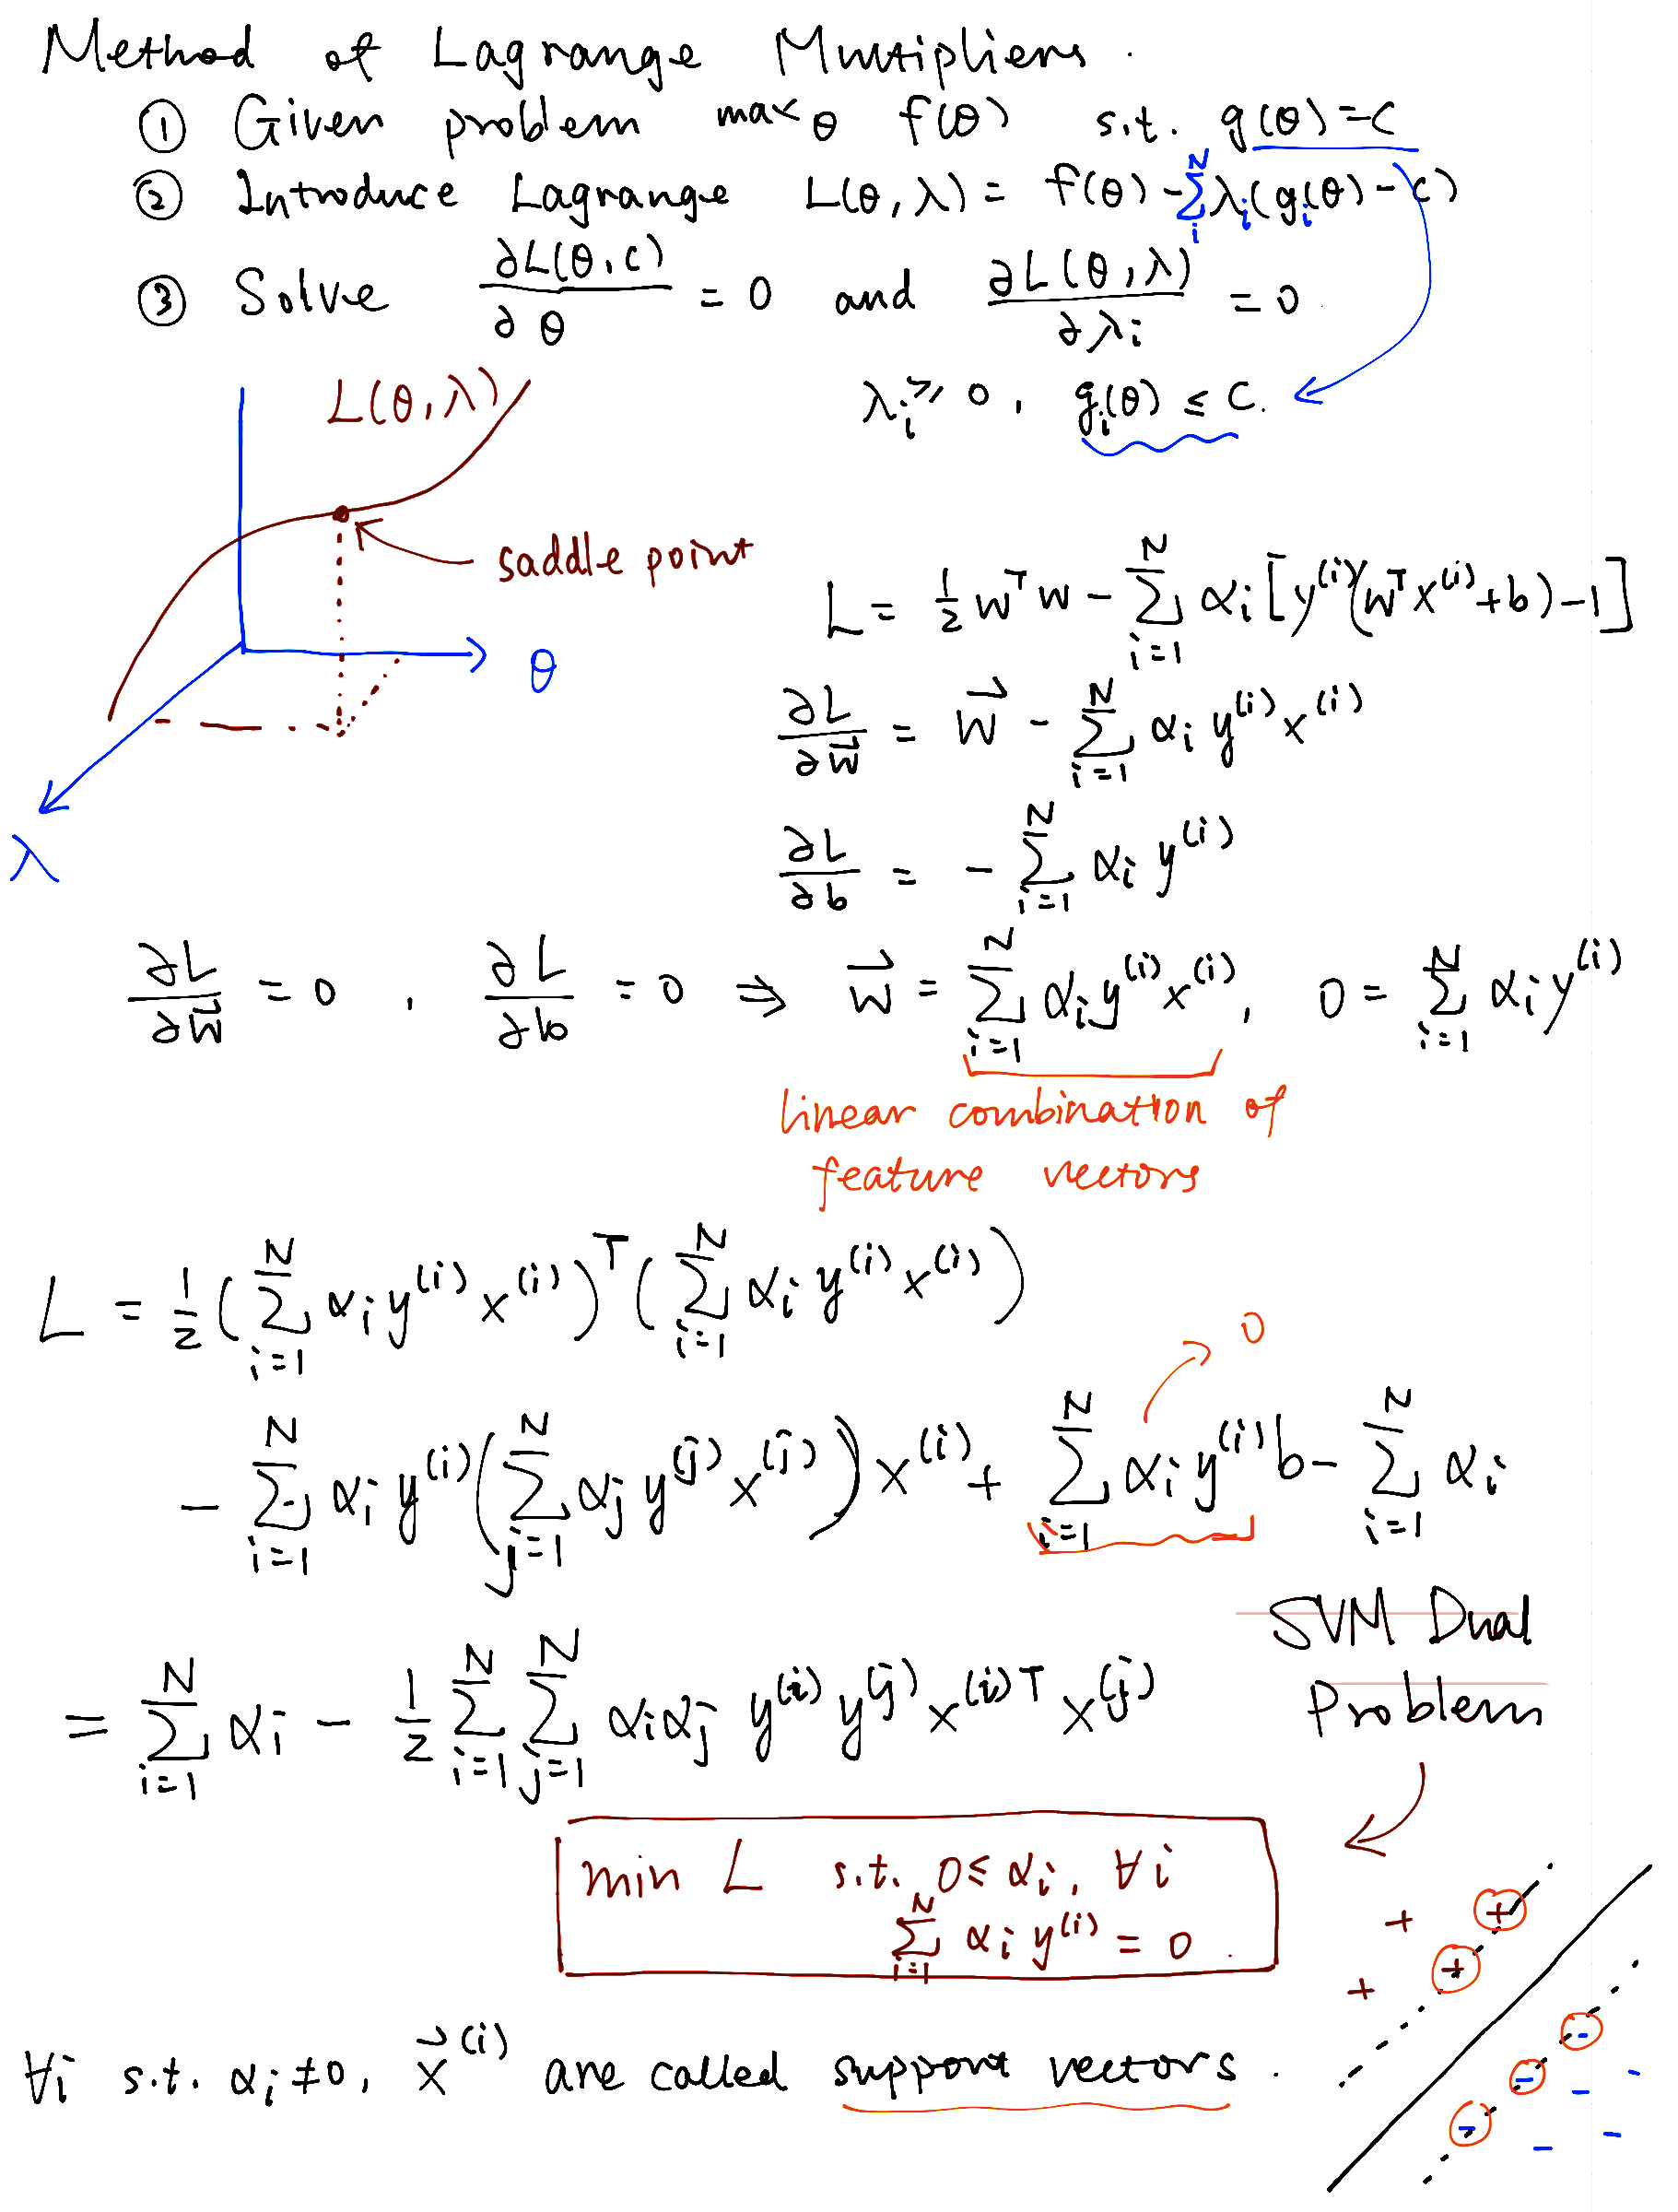 Method of Lagrange Multipliers.
① Given problem max_θ f(θ) s.t. g(θ)=c
② Introduce Lagrange L(θ,λ) = f(θ) - Σ_i^N λ_i (g_i(θ) - c)
③ Solve ∂L(θ,c)/∂θ = 0 and ∂L(θ,λ)/∂λ_i = 0
λ_i ≥ 0, g_i(θ) ≤ c.
L(θ,λ)
saddle point
θ
λ
L = 1/2 w^T w - Σ_{i=1}^N α_i [y^(i)(w^T x^(i) + b) - 1]
∂L/∂w⃗ = w⃗ - Σ_{i=1}^N α_i y^(i) x^(i)
∂L/∂b = - Σ_{i=1}^N α_i y^(i)
∂L/∂w⃗ = 0, ∂L/∂b = 0 ⇒ w⃗ = Σ_{i=1}^N α_i y^(i) x^(i), 0 = Σ_{i=1}^N α_i y^(i)
linear combination of
feature vectors
L = 1/2 (Σ_{i=1}^N α_i y^(i) x^(i))^T (Σ_{i=1}^N α_i y^(i) x^(i))
0
- Σ_{i=1}^N α_i y^(i) (Σ_{j=1}^N α_j y^(j) x^(j)) x^(i) + Σ_{i=1}^N α_i y^(i) b - Σ_{i=1}^N α_i
SVM Dual
Problem
= Σ_{i=1}^N α_i - 1/2 Σ_{i=1}^N Σ_{j=1}^N α_i α_j y^(i) y^(j) x^(i)T x^(j)
min L s.t. 0 ≤ α_i, ∀i
Σ_{i=1}^N α_i y^(i) = 0.
∀i s.t. α_i ≠ 0, x⃗^(i) are called support vectors.